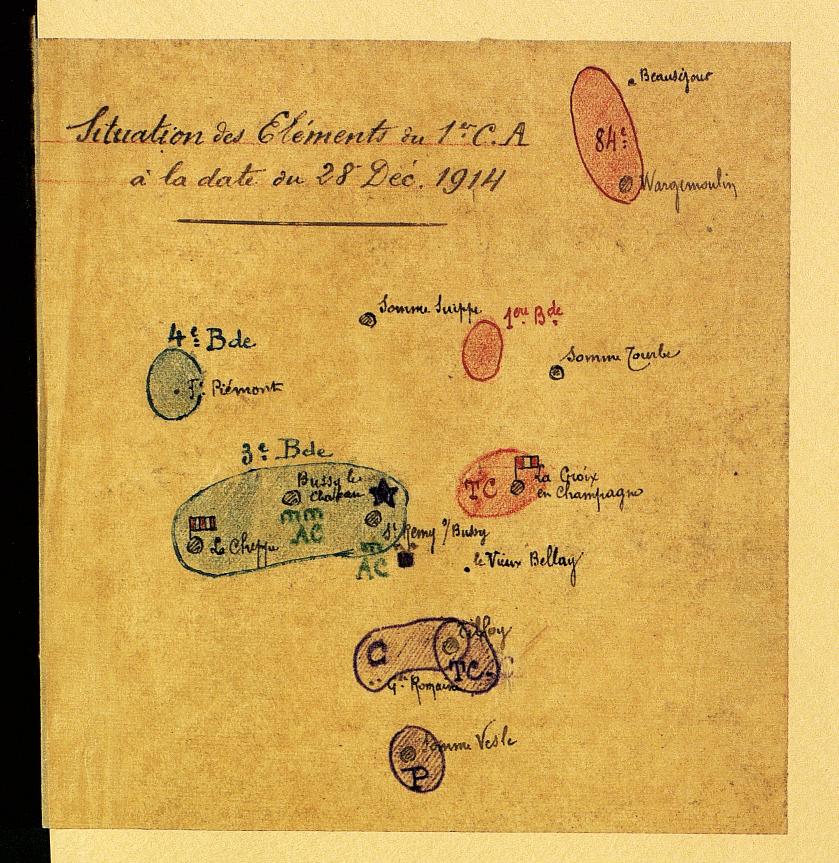 Situation des Eléments du 1er C.A
à la date du 28 Déc. 1914
Beauséjour
84e
Wargemoulin
Somme Suippe
1ère Bde
4e Bde
Somme Tourbe
Fe Piémont
3e Bde
Bussy le
Chateau
TC
La Croix
en Champagne
AC
St Remy s/Bussy
La Cheppe
AC
le Vieux Bellay
Tilloy
C
TC
Gde Romaine
Somme Vesle
P